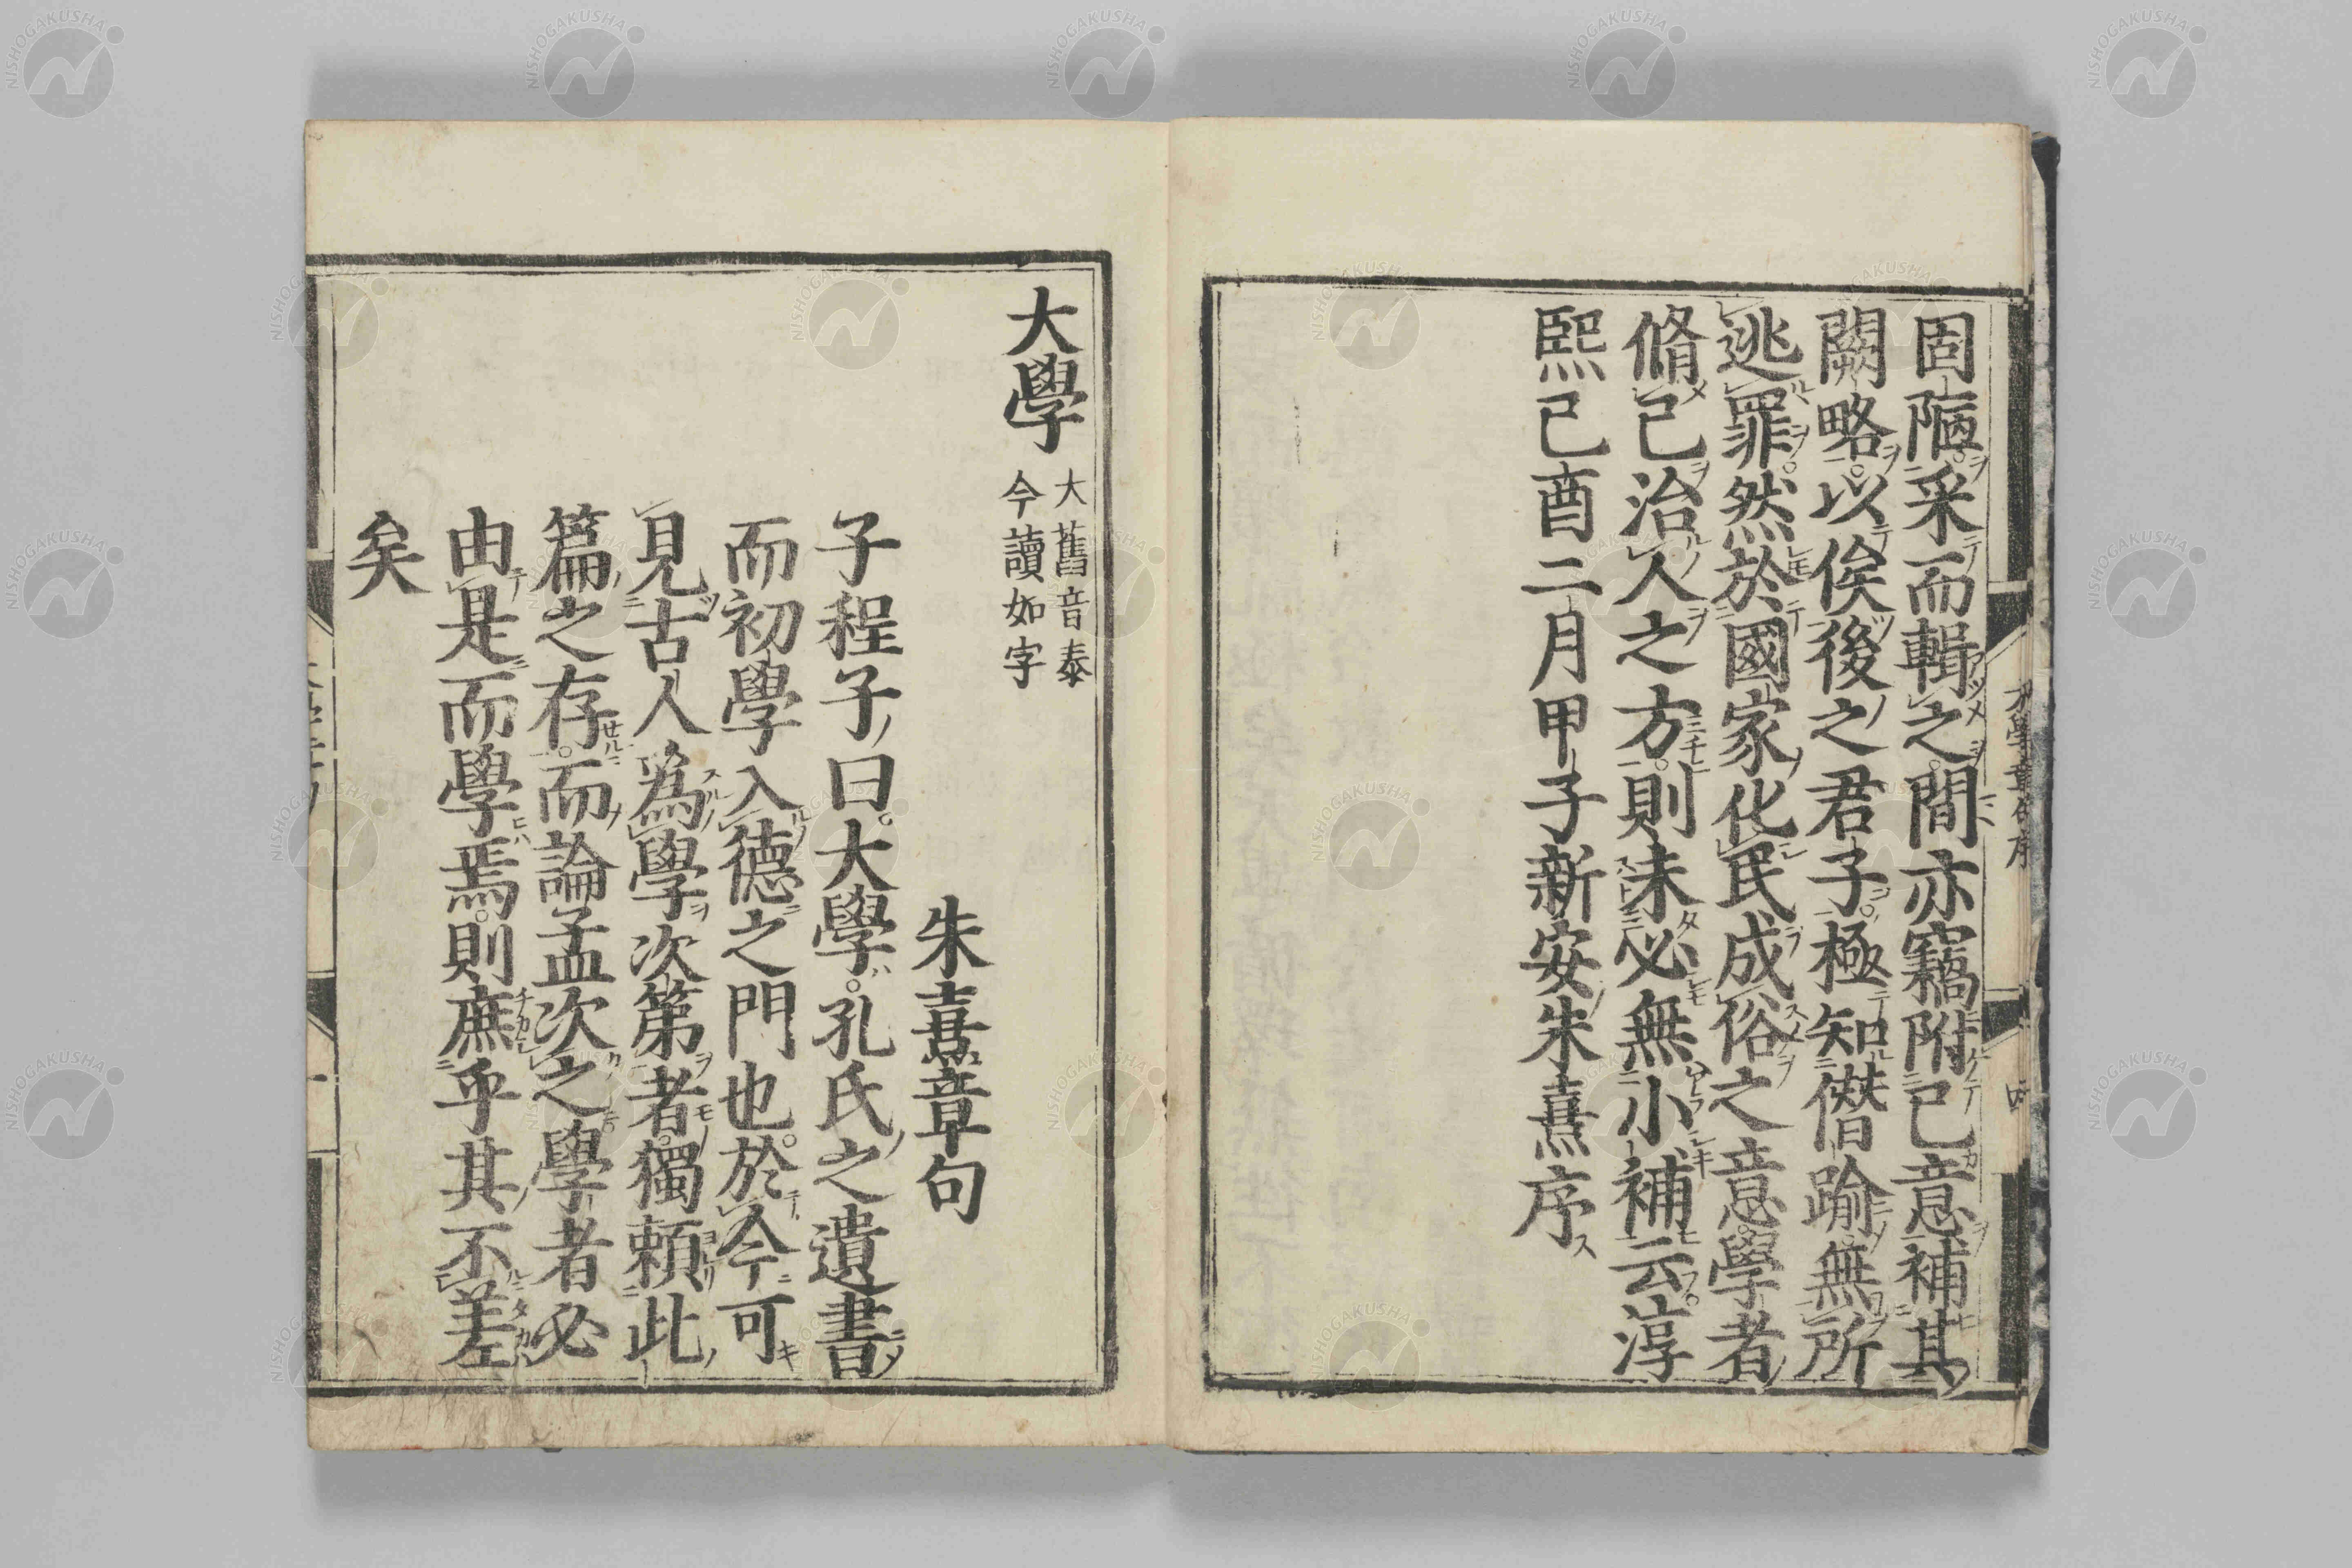 固陋采而輯之間亦竊附己意補其
闕略以俟後之君子極知僭踰無所
逃罪然於國家化民成俗之意學者
脩己治人之方則未必無小補云淳
熙己酉二月甲子新安朱熹序
大學章句序
四
大學
大舊音泰
今讀如字
朱熹章句
子程子曰大學孔氏之遺書
而初學入德之門也於今可
見古人為學次第者獨賴此
篇之存而論孟次之學者必
由是而學焉則庶乎其不差
矣
NISHOGAKUSHA